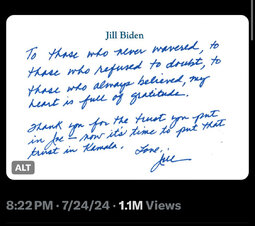 Jill Biden
To those who never wavered, to
those who refused to doubt, to
those who always believed, my
heart is full of gratitude.
Thank you for the trust you put
in Joe – now it's time to put that
trust in Kamala.
Love,
Jill
ALT
8:22 PM · 7/24/24 · 1.1M Views